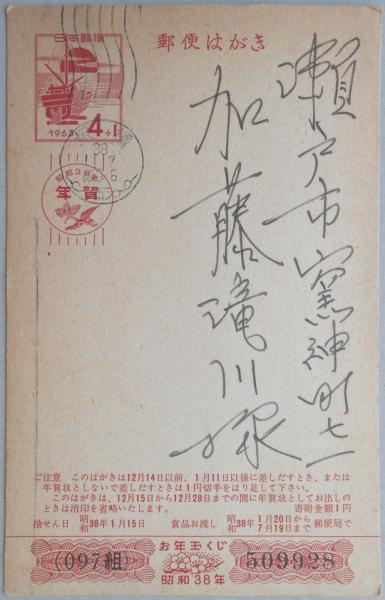 郵便はがき
日本郵便
1963
4+1
昭和38年
年賀
瀬戸市窯神町
加藤滝川様
ご注意　このはがきは12月14日以前、1月11日以後に差しだすとき、または
年賀状としないで差しだすときは1円切手をはり足して下さい。
このはがきは、12月15日から12月28日までの間に年賀状としてお出しの
ときは消印を省略いたします。　寄附金額1円
抽せん日 昭和38年1月15日　賞品お渡し 昭和38年 1月20日から 7月19日まで 郵便局で
お年玉くじ
(097組)
509928
昭和38年